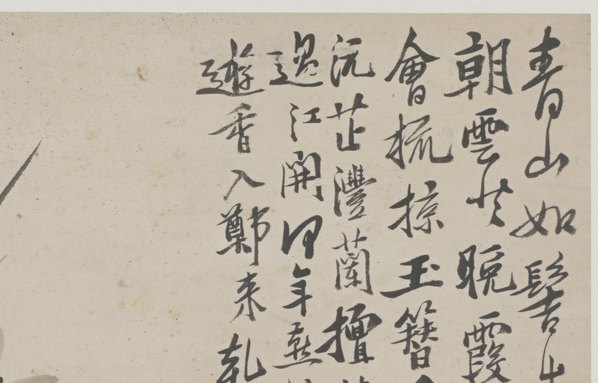 青山如髻
朝雲共晚霞
會梳掠玉簪
沅芷澧蘭擅
過江開年燕
遊香入鄭來